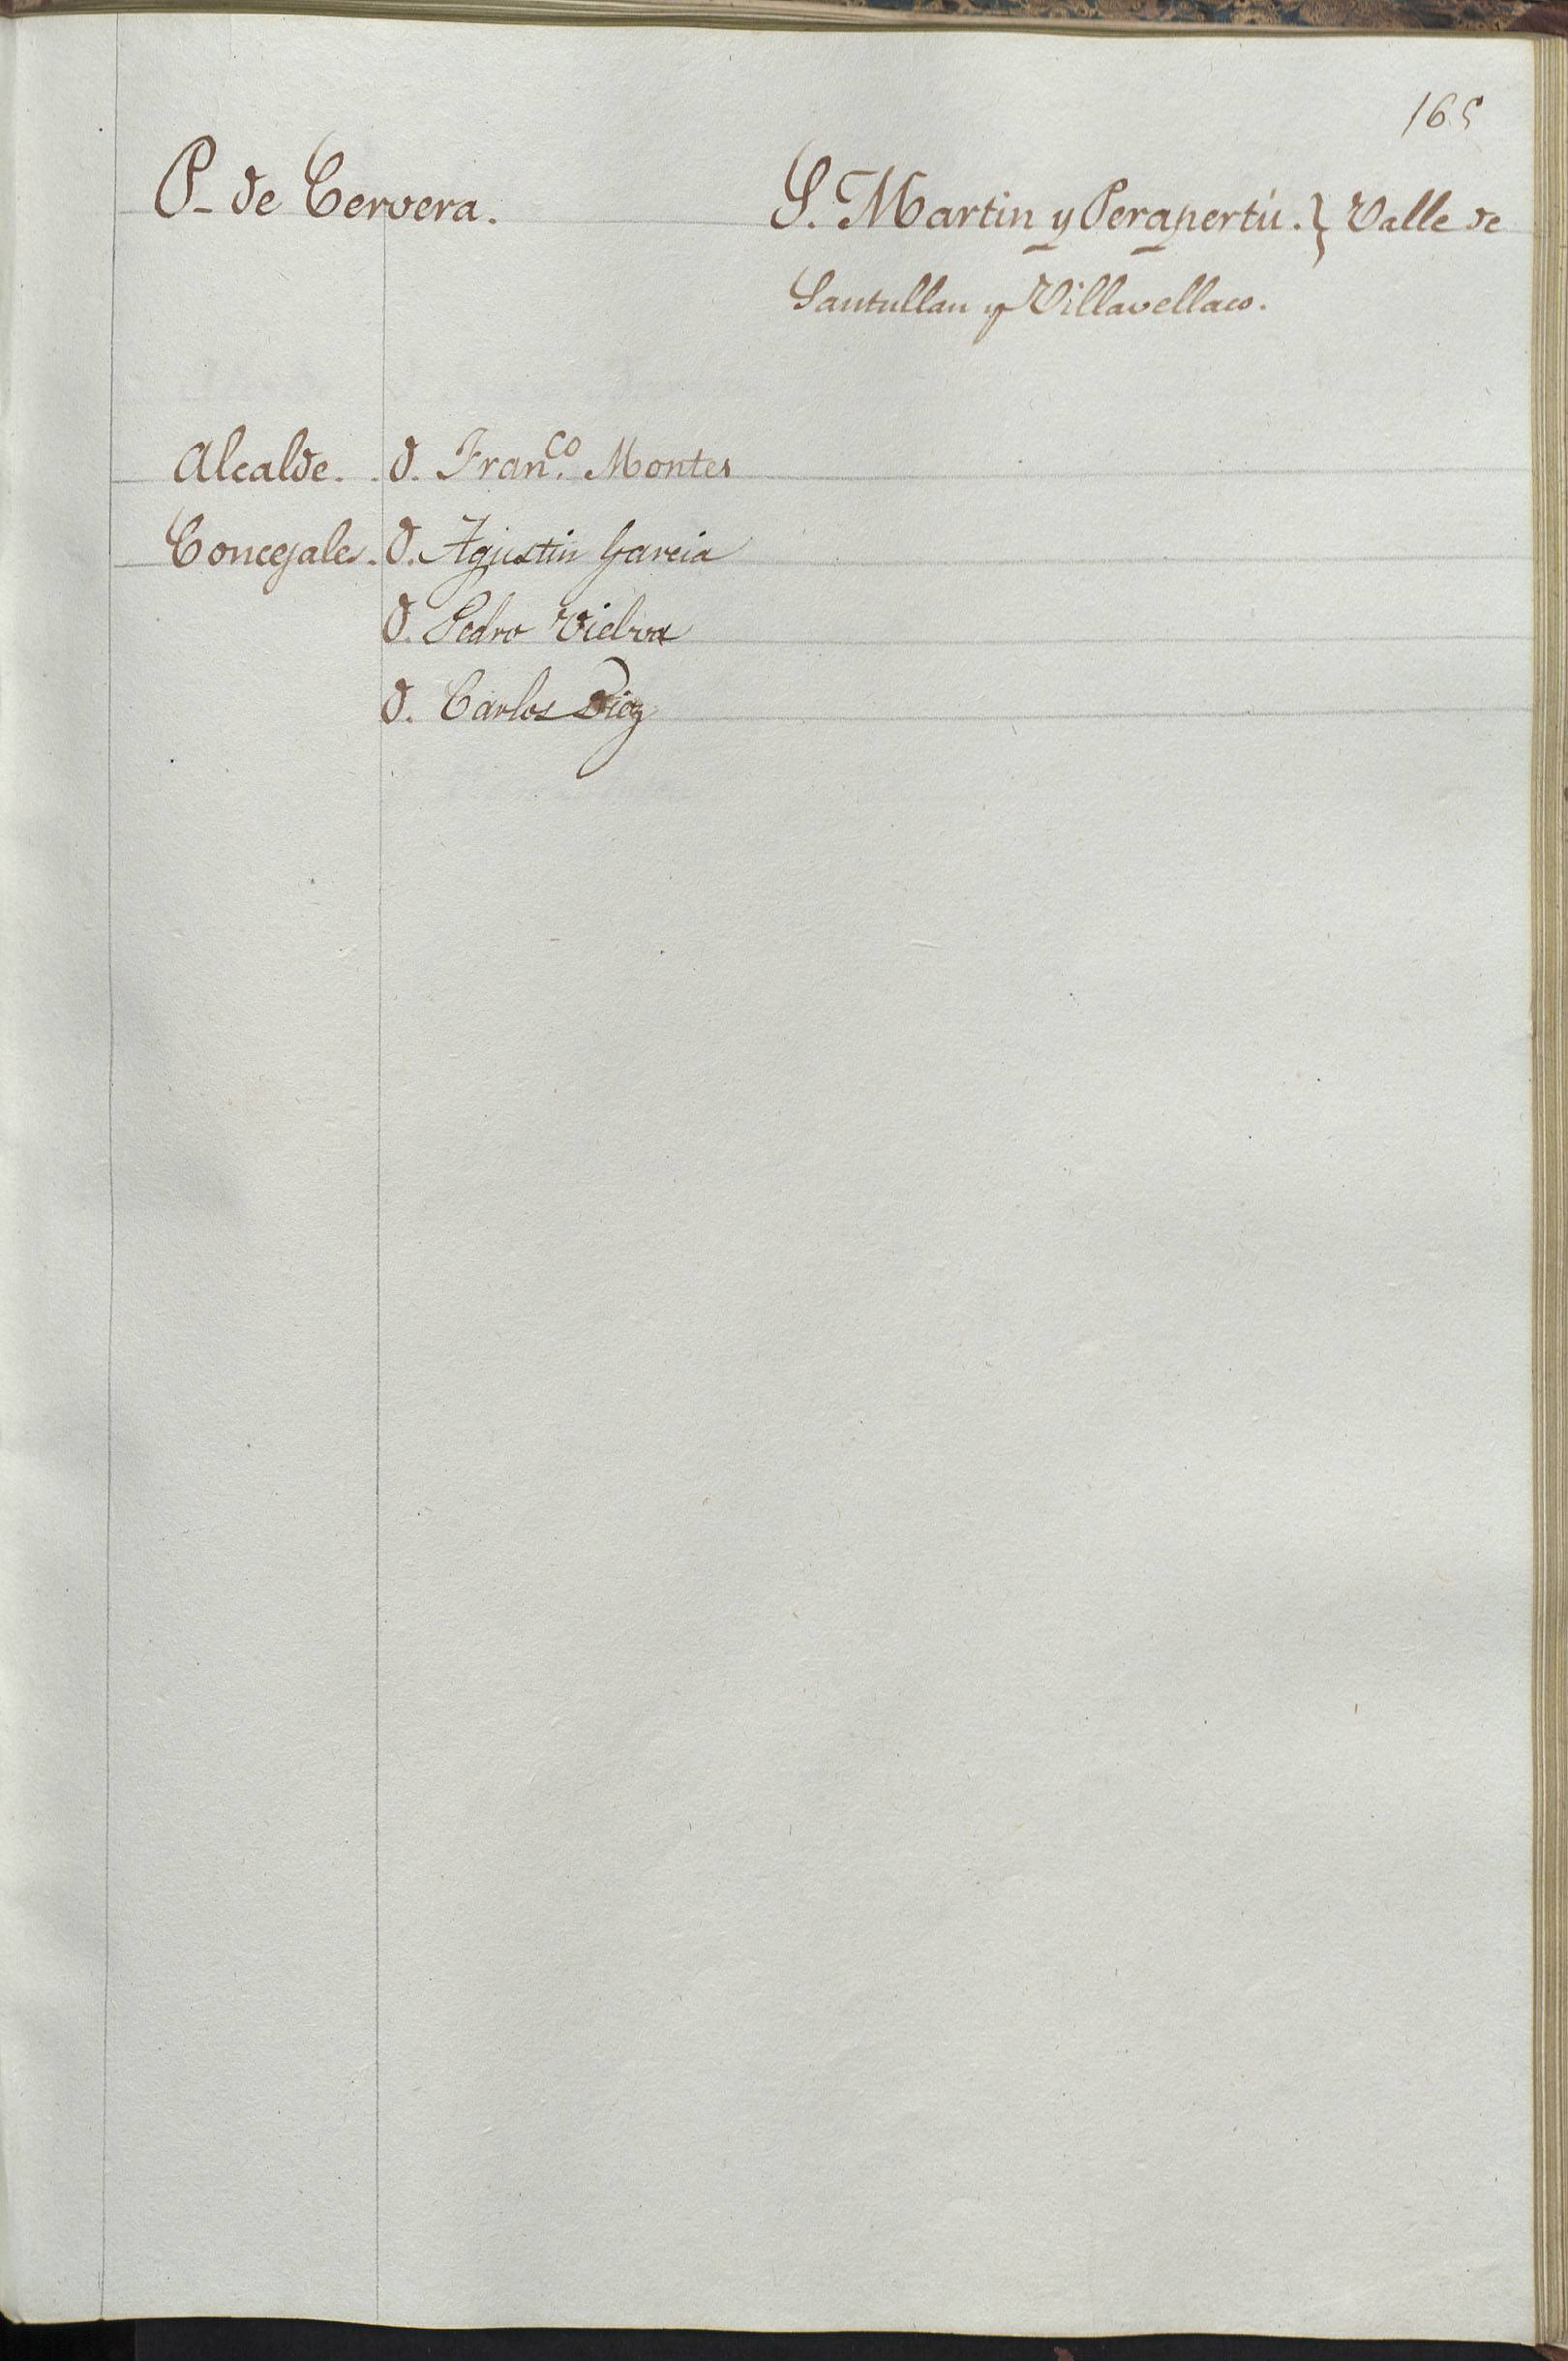 165
P. de Cervera.
S. Martin y Perapertú. } Valle de
Santullan y Villavellaco.
Alcalde. D. Fran.co Montes
Concejales. D. Agustin Garcia
D. Pedro Vielva
D. Carlos Diez